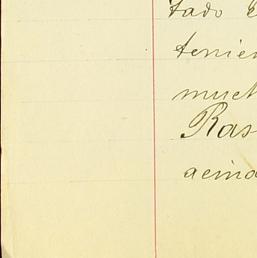 tado E
tenien
much
Ras
acind